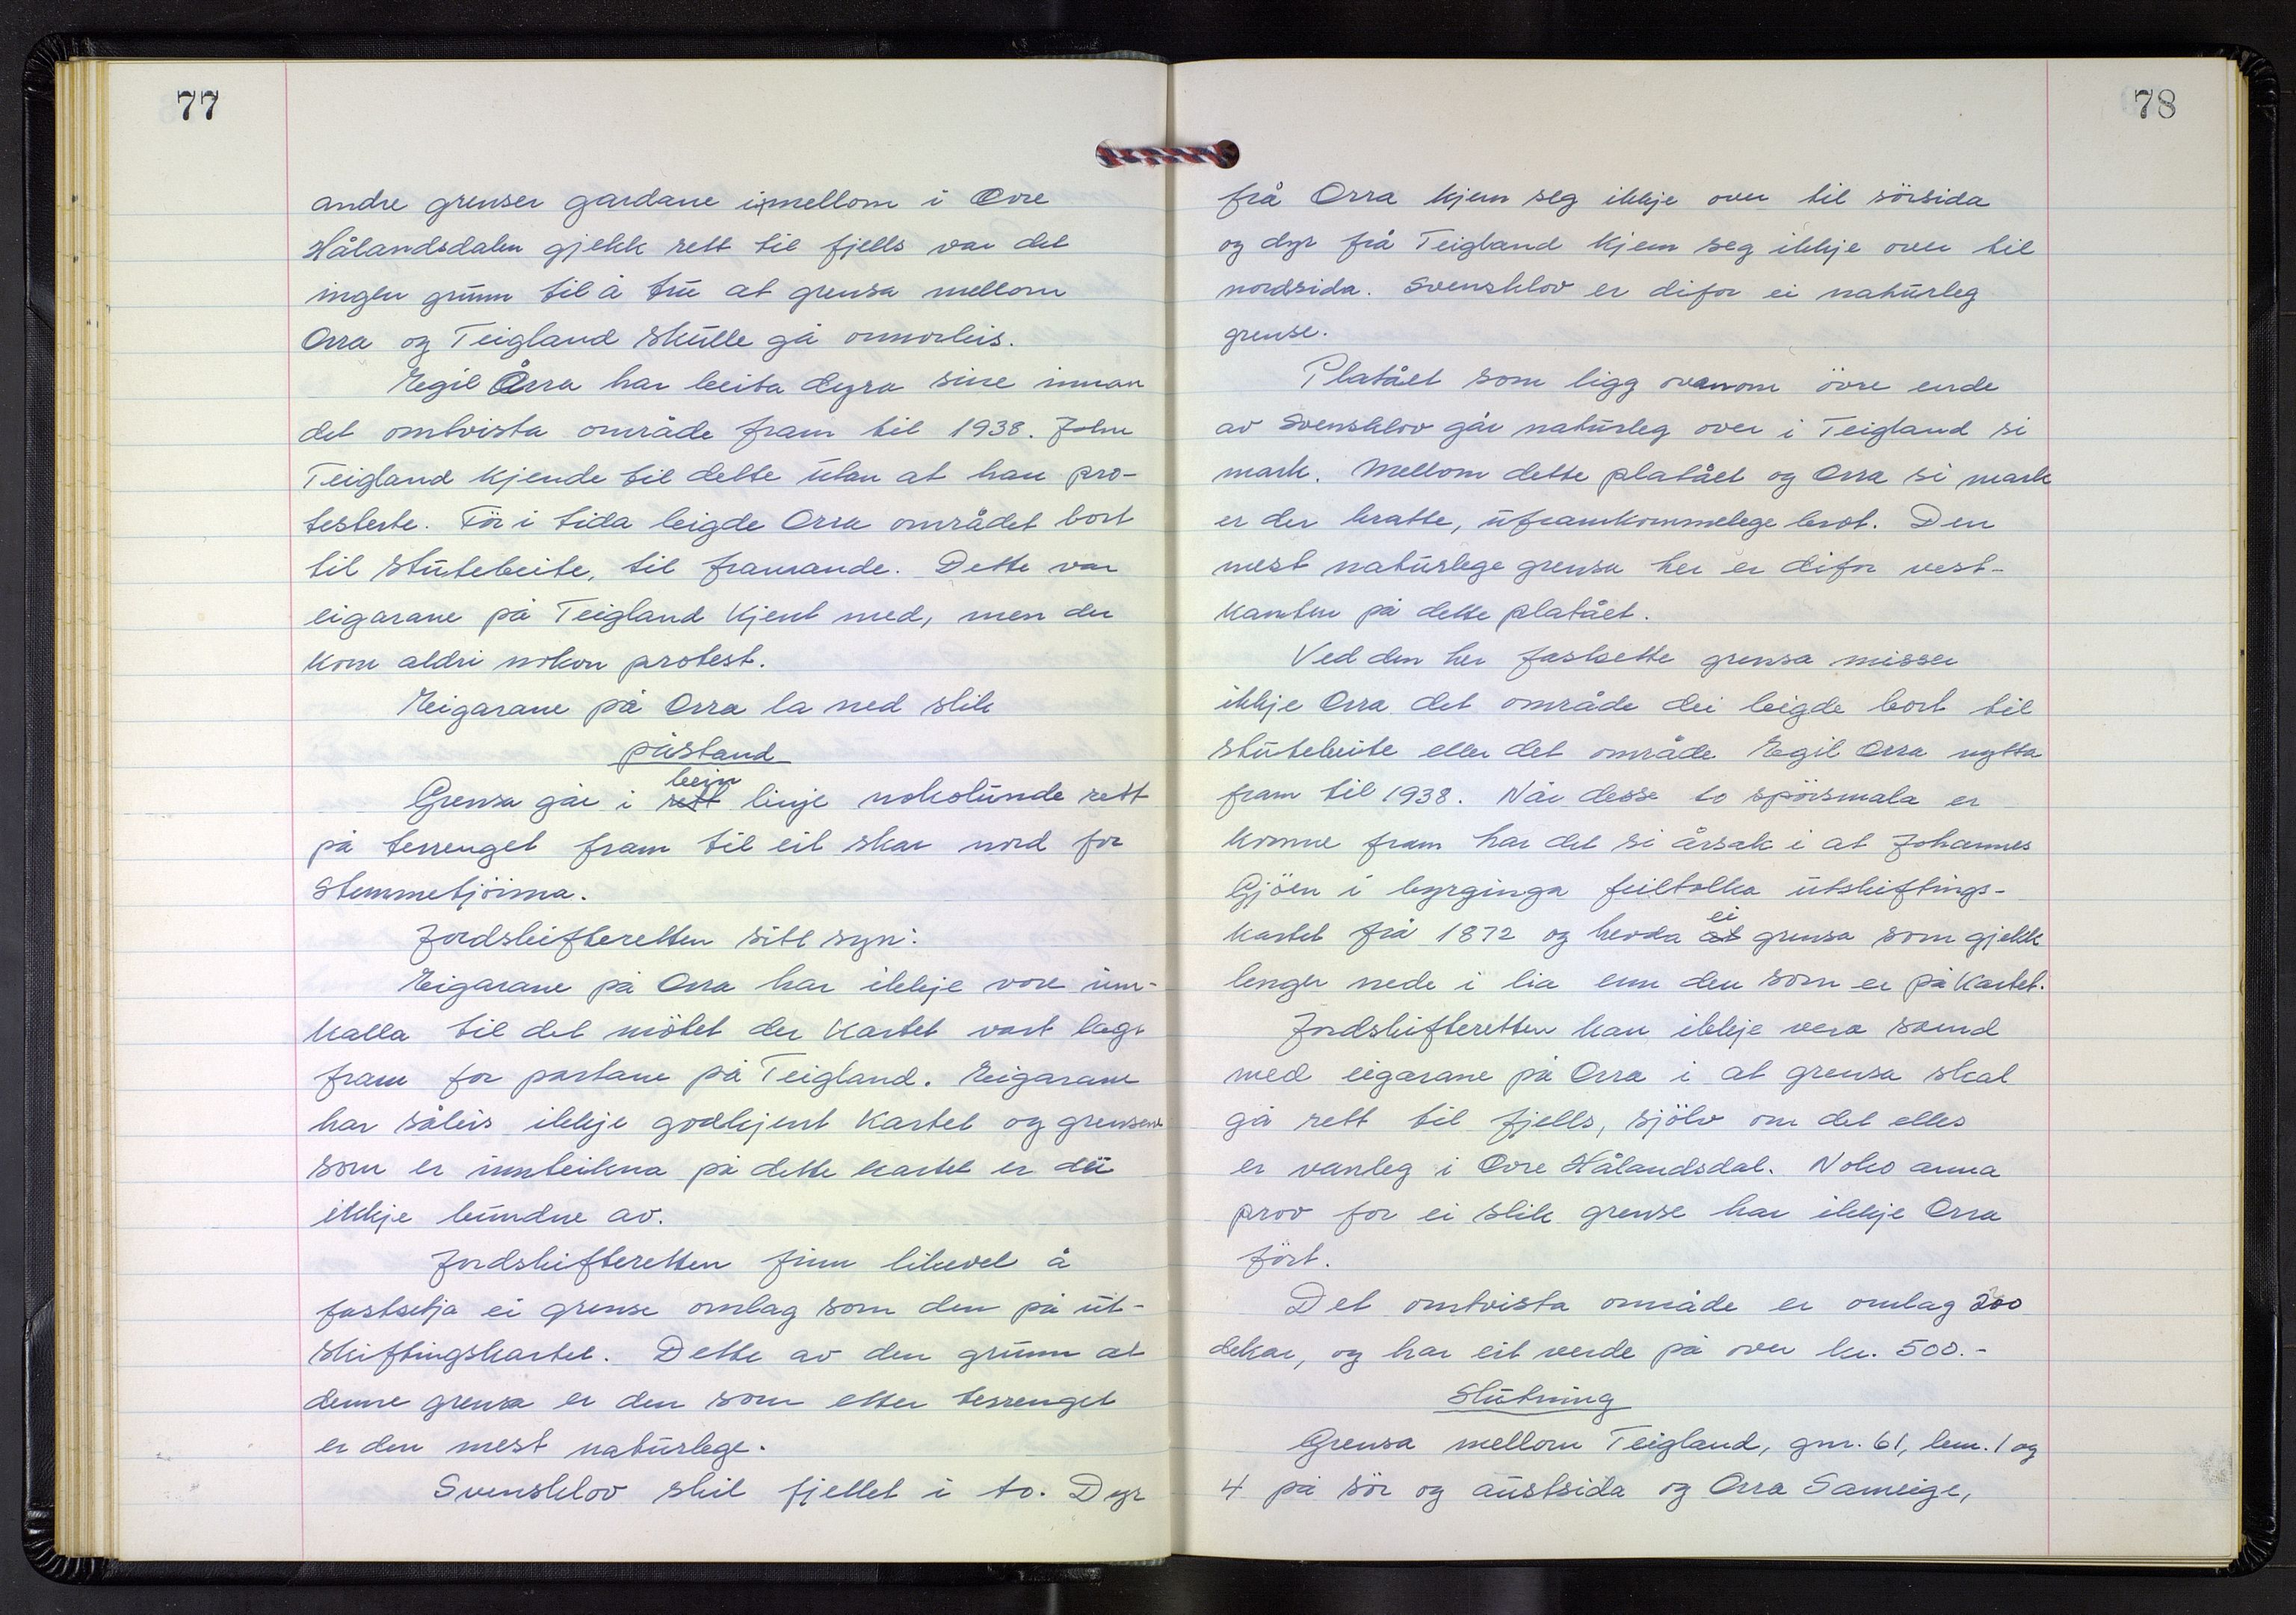 77
andre grenser gardane imellom i Øvre
Hålandsdalen gjekk rett til fjells var det
ingen grunn til å tru at grensa mellom
Orra og Teigland skulle gå onnorleis.
Eigil Orra har beita dyra sine innan
det omtvista område fram til 1938. John
Teigland kjende til dette utan at han pro-
testerte. Før i tida leigde Orra området bort
til stutebeite, til framande. Dette var
eigarane på Teigland kjent med, men der
kom aldri nokon protest.
Eigarane på Orra la ned slik
påstand
Grensa går i rett bein linje nokolunde rett
på terrenget fram til eit skar nord for
Stemmetjørna.
Jordskifteretten sitt syn:
Eigarane på Orra har ikkje vore inn-
kalla til det møtet der kartet vart lagt
fram for partane på Teigland. Eigarane
har såleis ikkje godkjent kartet og grensene
som er innteikna på dette kartet er dei
ikkje bundne av.
Jordskifteretten finn likevel å
fastsetja ei grense omlag som den på ut-
skiftingskartet. Dette av den grunn at
denne grensa er den som etter terrenget
er den mest naturlege.
Svensklov skil fjellet i to. Dyr
78
frå Orra kjem seg ikkje over til sörsida
og dyr frå Teigland kjem seg ikkje over til
nordsida. Svensklov er difor ei naturleg
grense.
Platået som ligg ovanom övre ende
av Svensklov går naturleg over i Teigland si
mark. Mellom dette platået og Orra si mark
er der bratte, uframkommelege brot. Den
mest naturlege grensa her er difor vest-
kanten på dette platået.
Ved den her fastsette grensa misser
ikkje Orra det område dei leigde bort til
stutebeite eller det område Eigil Orra nytta
fram til 1938. Når desse to spörsmala er
komne fram har det si årsak i at Johannes
Gjöen i byrginga feiltolka utskiftings-
kartet frå 1872 og hevda at ei grensa som gjekk
lenger nede i lia enn den som er på kartet.
Jordskifteretten kan ikkje vera samd
med eigarane på Orra i at grensa skal
gå rett til fjells, sjölv om det elles
er vanleg i Øvre Hålandsdal. Noko anna
prov for ei slik grense har ikkje Orra
fört.
Det omtvista område er omlag 200
dekar, og har eit verde på over kr. 500.-
Slutning
Grensa mellom Teigland, gnr. 61, bnr. 1 og
4 på sör og austsida og Orra Sameige,